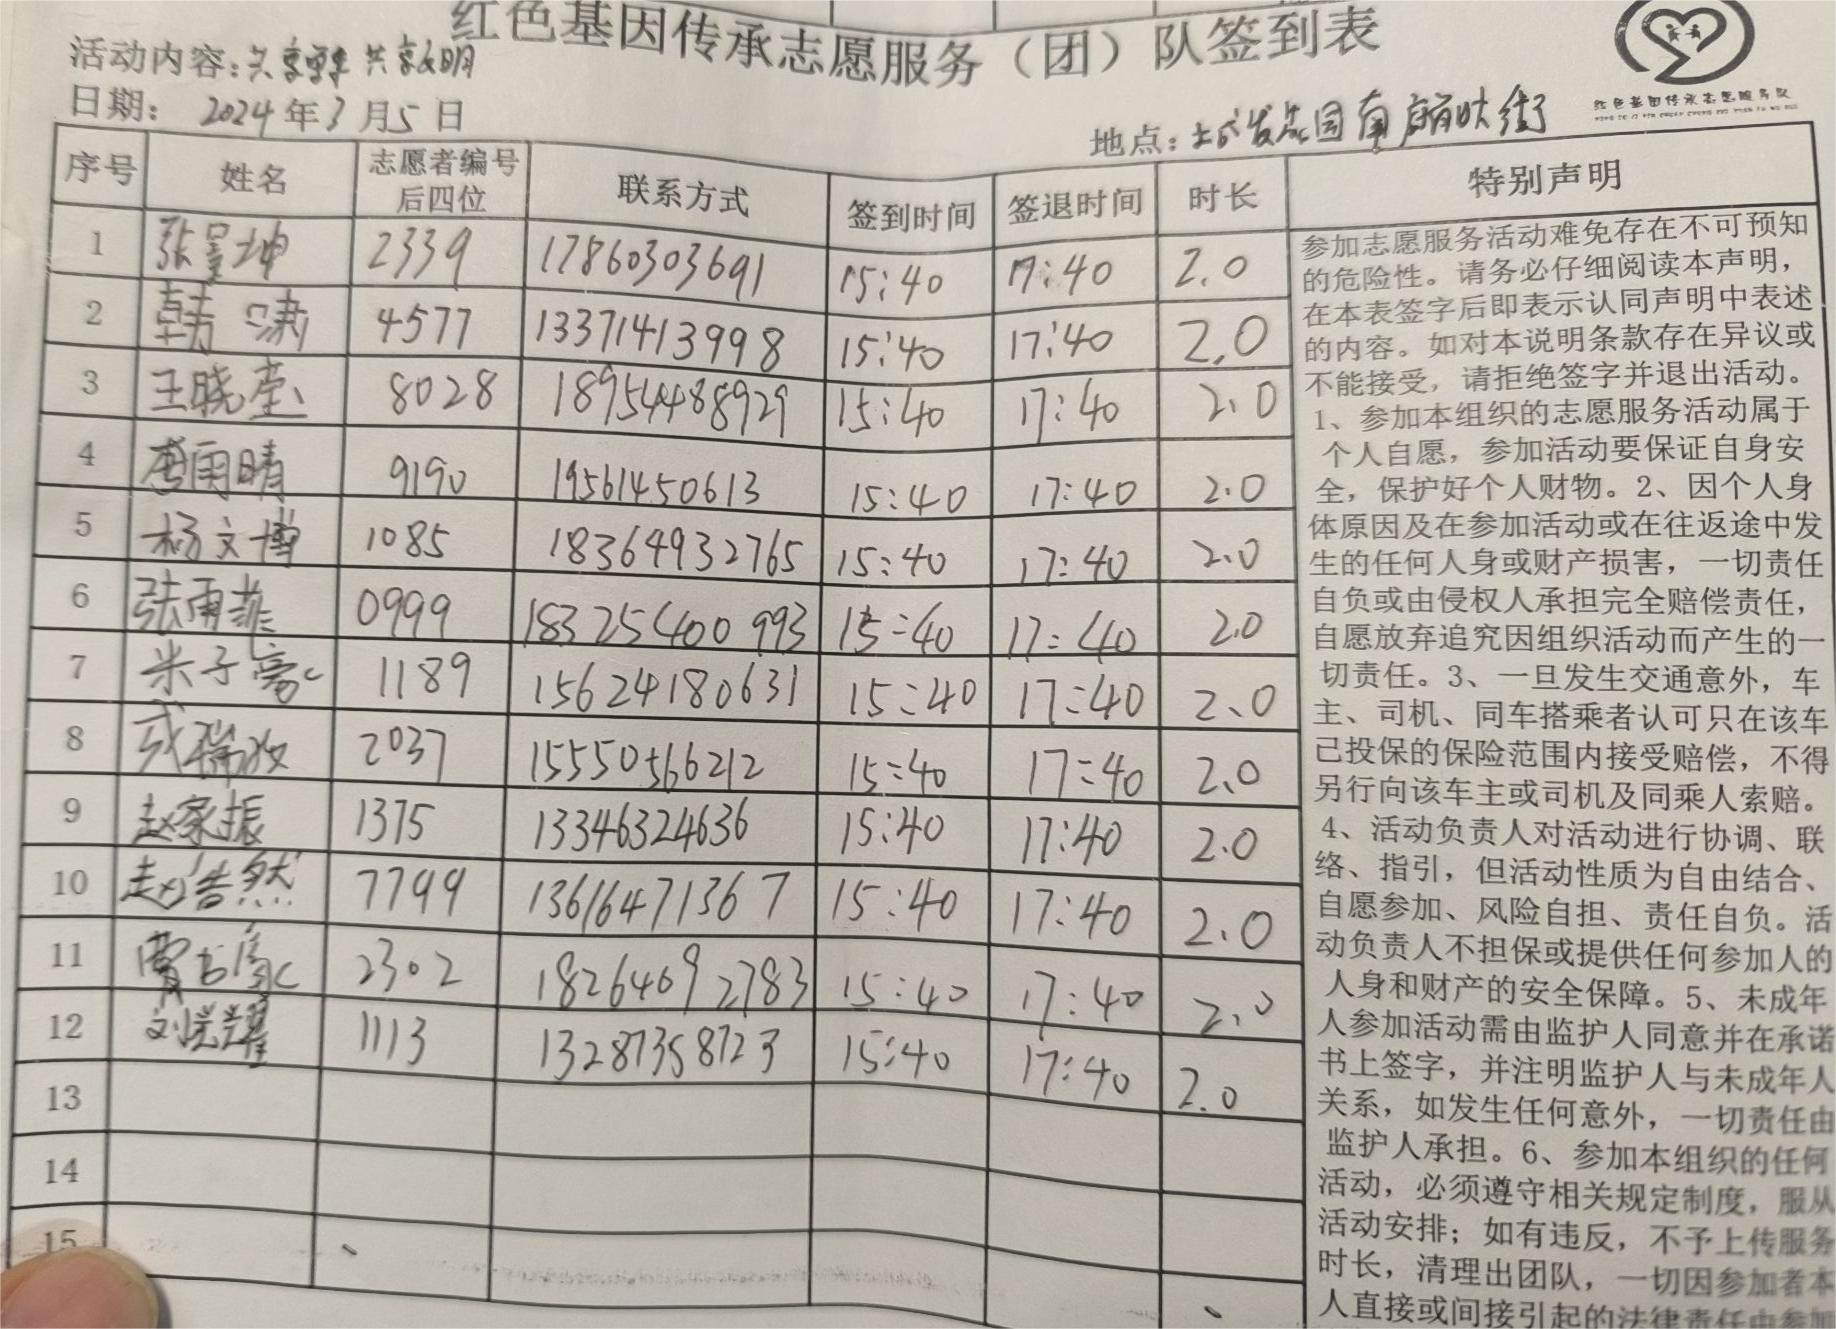 红色基因传承志愿服务（团）队签到表
活动内容：共享单车 共享文明
红色基因传承志愿服务队
日期： 2024年3月5日
地点：城发花园南门前大街
序号 姓名 志愿者编号后四位 联系方式 签到时间 签退时间 时长 特别声明
1 张景坤 2339 17860303691 15:40 17:40 2.0
2 韩啸 4577 13371413998 15:40 17:40 2.0
3 王晓莹 8028 18954488929 15:40 17:40 2.0
4 雨晴 9190 19561450613 15:40 17:40 2.0
5 杨文博 1085 18364932765 15:40 17:40 2.0
6 张雨菲 0999 18325400993 15:40 17:40 2.0
7 米子豪 1189 15624180631 15:40 17:40 2.0
8 2037 15550566212 15:40 17:40 2.0
9 赵家振 1375 13346324636 15:40 17:40 2.0
10 赵浩然 7799 13616471367 15:40 17:40 2.0
11 2302 18264692783 15:40 17:40 2.0
12 刘耀 1113 13287358723 15:40 17:40 2.0
13
14
15
参加志愿服务活动难免存在不可预知
的危险性。请务必仔细阅读本声明，
在本表签字后即表示认同声明中表述
的内容。如对本说明条款存在异议或
不能接受，请拒绝签字并退出活动。
1、参加本组织的志愿服务活动属于
个人自愿，参加活动要保证自身安
全，保护好个人财物。2、因个人身
体原因及在参加活动或在往返途中发
生的任何人身或财产损害，一切责任
自负或由侵权人承担完全赔偿责任，
自愿放弃追究因组织活动而产生的一
切责任。3、一旦发生交通意外，车
主、司机、同车搭乘者认可只在该车
已投保的保险范围内接受赔偿，不得
另行向该车主或司机及同乘人索赔。
4、活动负责人对活动进行协调、联
络、指引，但活动性质为自由结合、
自愿参加、风险自担、责任自负。活
动负责人不担保或提供任何参加人的
人身和财产的安全保障。5、未成年
人参加活动需由监护人同意并在承诺
书上签字，并注明监护人与未成年人
关系，如发生任何意外，一切责任由
监护人承担。6、参加本组织的任何
活动，必须遵守相关规定制度，服从
活动安排；如有违反，不予上传服务
时长，清理出团队，一切因参加者本
人直接或间接引起的法律责任由参加